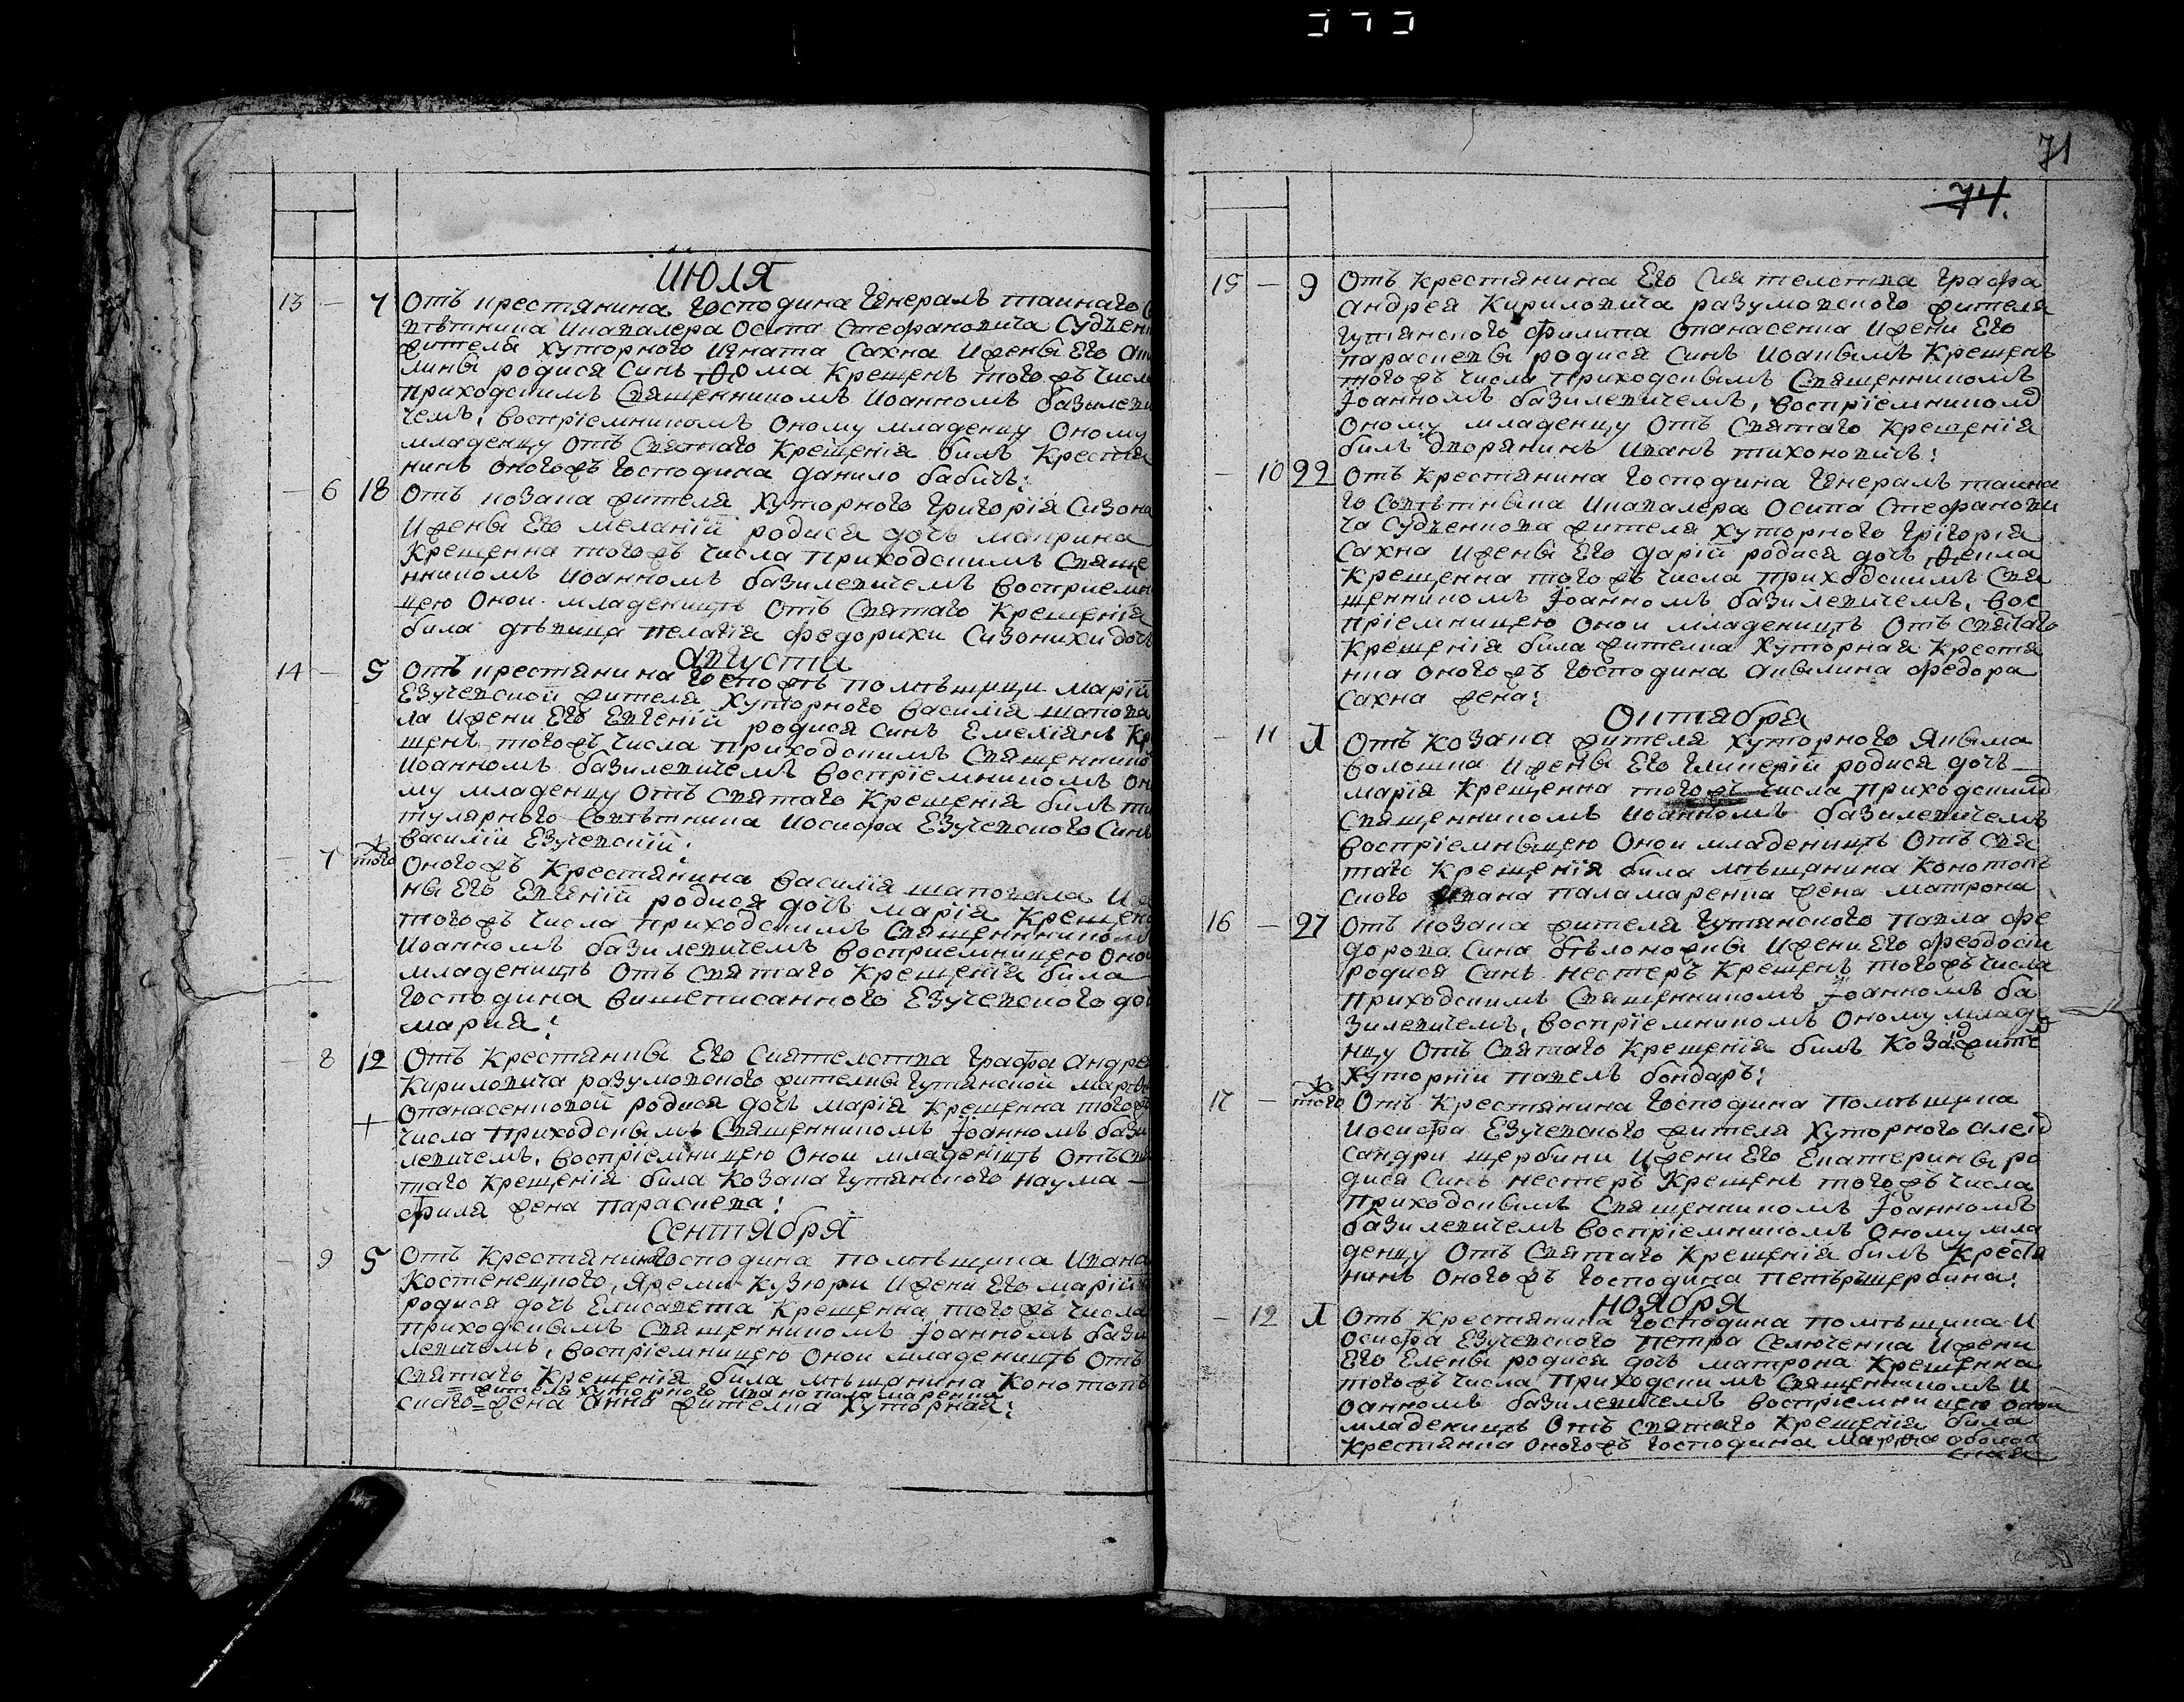 Июля
13 — 7 Отъ крестянина Господина Генералъ таинаго
вѣтника икавалера Осипа Стефановича Судиен
жителя хуторного Игната Сахна ижены Его
лины родися Синъ Ѳома Крещенъ тогожъ числа
приходскимъ Священникомъ Иоанномъ базилеви
чемъ, воспріемникомъ Оному младенцу Оному
младенцу Отъ Святаго Крещенія билъ Крестя
нинъ оногожъ Господина данило бабичъ:
— 6 18 Отъ козака жителя Хуторного Григорія Сизона
Ижены Его меланіи родися дочъ маврина
Крещенна тогожъ числа приходскимъ Свяще
нникомъ Иоанномъ базилевичемъ восприемни
цею Онои младеницѣ Отъ Святаго Крещенія
била дѣвица пелагія федорихи Сизонихи дочъ
Августа
14 — 5 Отъ крестянина Госпожъ помѣщици маріи
Езучевской жителя Хуторного василія шапова
ла ижени Его Евгеніи родися Синъ Емеліянъ Кре
щенъ тогожъ числа приходскимъ Священнико
Иоанномъ базилевичемъ воспріемникомъ Он
му младенцу Отъ Святаго Крещенія билъ ти
тулярного Совѣтника Иосифа Езучевского Синъ
василій Езучевскій:
— 7 того Оногожъ Крестянина василія шаповала Иже
ны Его Евгеніи родися дочъ марія Крещен
тогожъ числа приходскимъ Священникомъ
Иоанномъ базилевичемъ восприемницею Онои
младеницѣ Отъ Святаго Крещенія била
Господина вишеписанного Езучевского доч
мария:
— 8 12 Отъ Крестянкы Его Сиятелства Графа Андре
Кириловича разумовского жителкы Гутянской марфы
Опанасенковой родися дочъ марія Крещенна тогожъ
+ числа приходскымъ Священникомъ Іоанномъ бази
левичемъ, воспріемницею Онои младеницѣ Отъ Свя
таго Крещенія била Козака Гутянского наума —
филя жена параскева:
Сентября
— 9 5 Отъ Крестянина Господина помѣщика Ивана
Костенецкого, яреми Кузюри ижени Его маріи
родися дочъ Елисавета Крещенна тогожъ числа
приходскымъ Священникомъ Іоанномъ бази
левичемъ, воспріемницею Онои младеницѣ Отъ
Святаго Крещенія била мѣщанина Конотопъ
= жителя хуторного ивана паламаренка
ского = жена Анна жителка Хуторная:
71
74.
15 — 9 Отъ Крестянина Его Сиятелства Графа
Андрея Кириловича разумовского жителя
Гутянского филипа Опанасенка ижени Его
параскевы родися Синъ Иоакымъ Крещенъ
тогожъ числа приходскымъ Священникомъ
Іоанномъ базилевичемъ, воспріемникомъ
Оному младенцу Отъ Святаго Крещенія
билъ дворянинъ Иванъ тихоновичъ:
— 10 22 Отъ Крестянина Господина Генералъ таина
го Совѣтныка Икавалера Осипа Стефанови
ча Судиенкова жителя Хуторного Грігорія
Сахна ижены Его даріи родися дочъ Ѳекла
Крещенна тогожъ числа приходскимъ Свя
щенникомъ Іоанномъ базилевичемъ, вос
пріемницею Онои младеницѣ Отъ Святаго
Крещенія била жителка Хуторная Крестя
нка оногожъ Господина Акилина федора
Сахна жена:
Октября
— 11 1 Отъ Козака жителя хуторного якыма
волошка ижены Его Гликеріи родися дочъ —
марія Крещенна тогожъ числа приходскимъ
Священникомъ Иоанномъ базилевичемъ
воспріемныцею Онои младеницѣ Отъ Свя
таго Крещенія била мѣщанина Конотопъ
ского Ивана паламаренка жена матрона
16 — 27 Отъ козака жителя Гутянского павла фе
дорова Сина бѣлоножкы ижени Его феодосіи
родися Синъ нестеръ Крещенъ тогожъ числа
приходскимъ Священникомъ Іоанномъ ба
зилевичемъ, воспріемникомъ Оному младе
нцу Отъ Святаго Крещенія билъ Козакъ жите
хуторній павелъ бондаръ:
17 — того Отъ Крестянина Господина помѣщика
Иосифа Езучевского жителя Хуторного алек
сандри щербини ижени Его Екатерины ро
дися Синъ нестеръ Крещенъ тогожъ числа
приходскымъ Священникомъ Іоанномъ
базилевичемъ воспріемникомъ Оному мла
денцу Отъ Святаго Крещенія билъ Крестя
нинъ оногожъ Господина петръ щербина:
ноября
— 12 1 Отъ Крестянина Господина помѣщика И
осифа Езучевского петра Селюченка ижени
Его Елены родися дочъ матрона Крещенна
тогожъ числа приходскимъ Священникомъ И
оанномъ базилевичемъ воспріемницею онои
младеницѣ Отъ Святаго Крещенія била
крестянка оногожъ Господина марфа